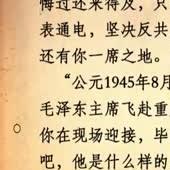 悔过还来得及，只
表通电，坚决反共
还有你一席之地。
“公元1945年8月
毛泽东主席飞赴重
你在现场迎接，毕
吧，他是什么样的